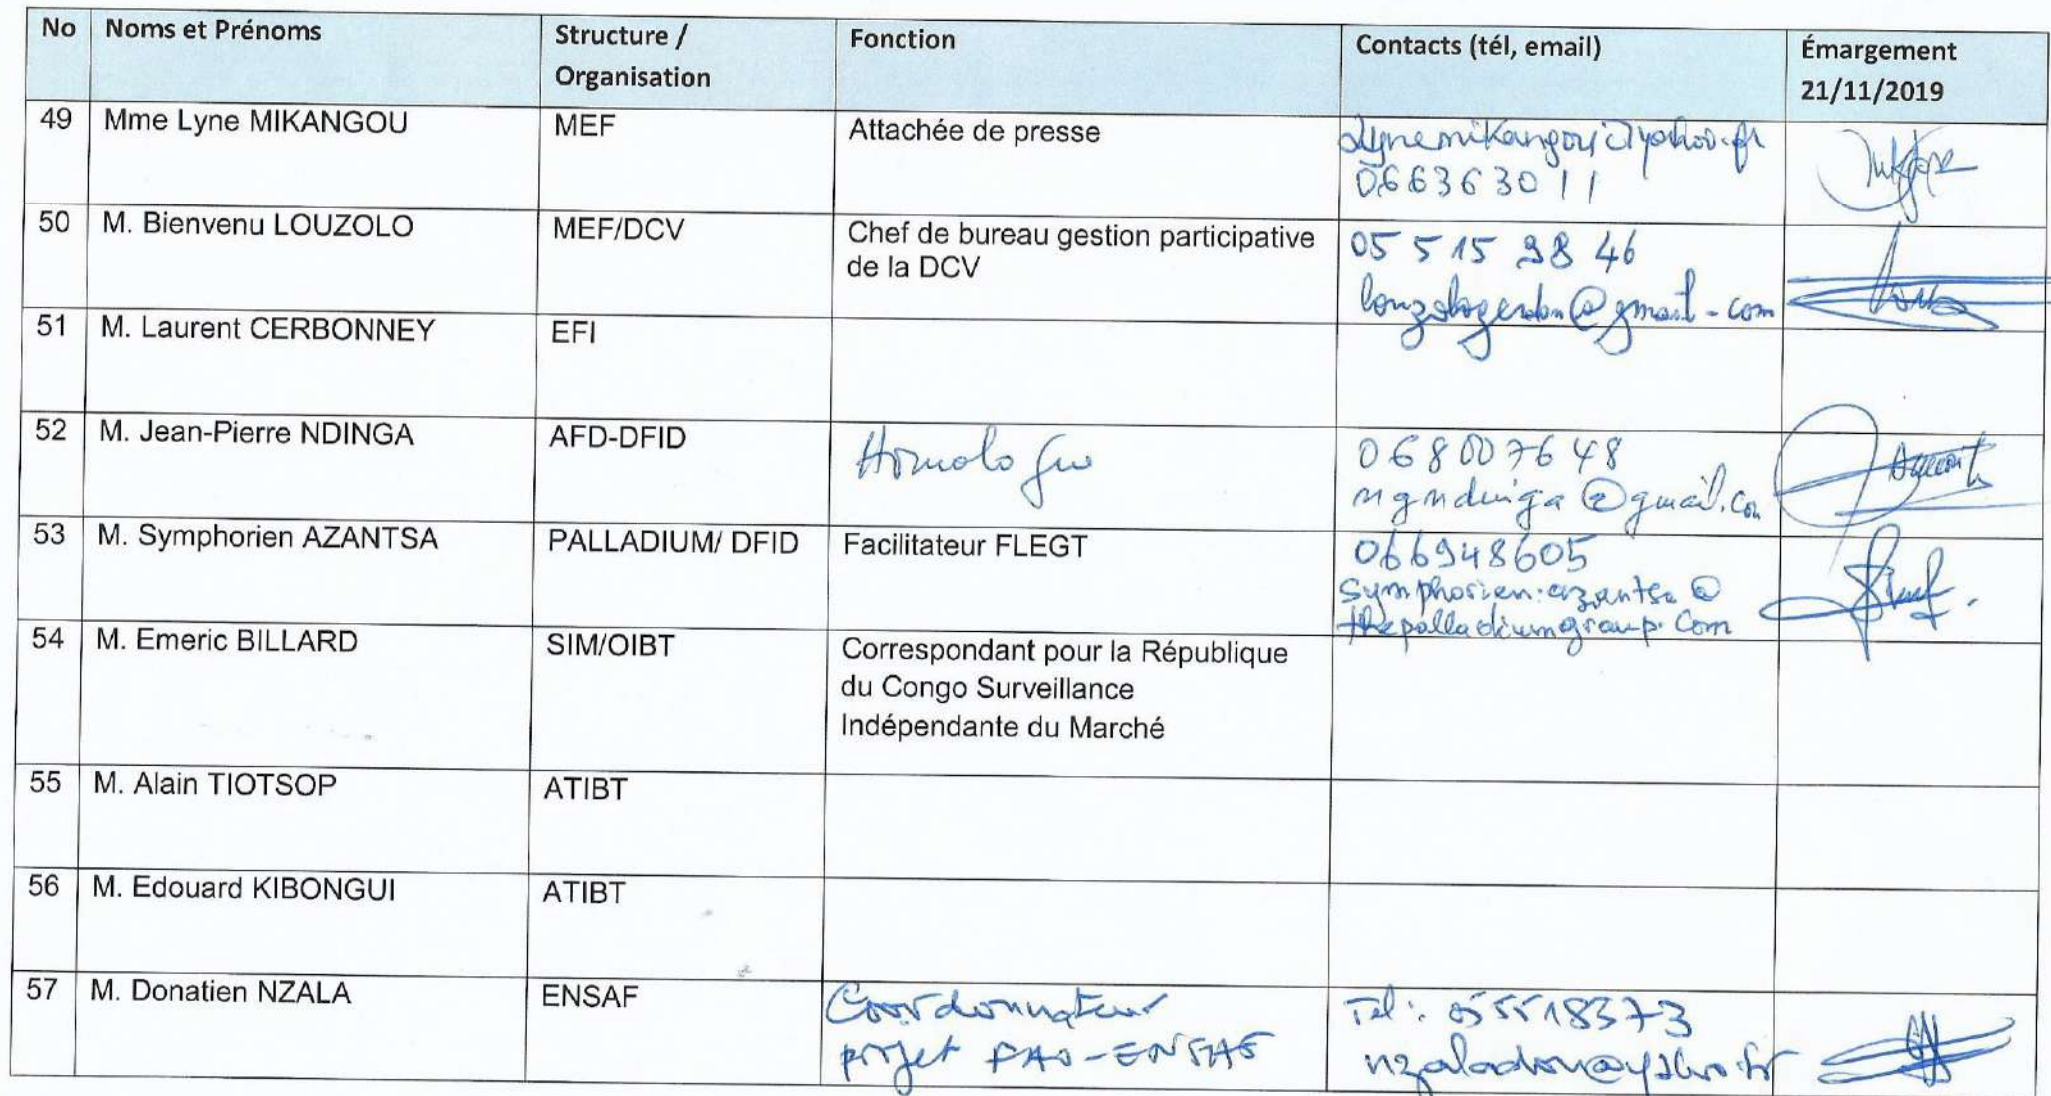 No Noms et Prénoms Structure / Organisation Fonction Contacts (tél, email) Émargement 21/11/2019
49 Mme Lyne MIKANGOU MEF Attachée de presse
066363011
50 M. Bienvenu LOUZOLO MEF/DCV Chef de bureau gestion participative
de la DCV
05 515 98 46
@gmail.com
51 M. Laurent CERBONNEY EFI
52 M. Jean-Pierre NDINGA AFD-DFID Homologue 068007648
mgndinga@gmail.com
53 M. Symphorien AZANTSA PALLADIUM/ DFID Facilitateur FLEGT 066948605
symphorien.azantsa@
thepalladiumgroup.com
54 M. Emeric BILLARD SIM/OIBT Correspondant pour la République
du Congo Surveillance
Indépendante du Marché
55 M. Alain TIOTSOP ATIBT
56 M. Edouard KIBONGUI ATIBT
57 M. Donatien NZALA ENSAF Coordonnateur Tel: 055518373
projet FAO-ENSAF nzaladon@yahoo.fr